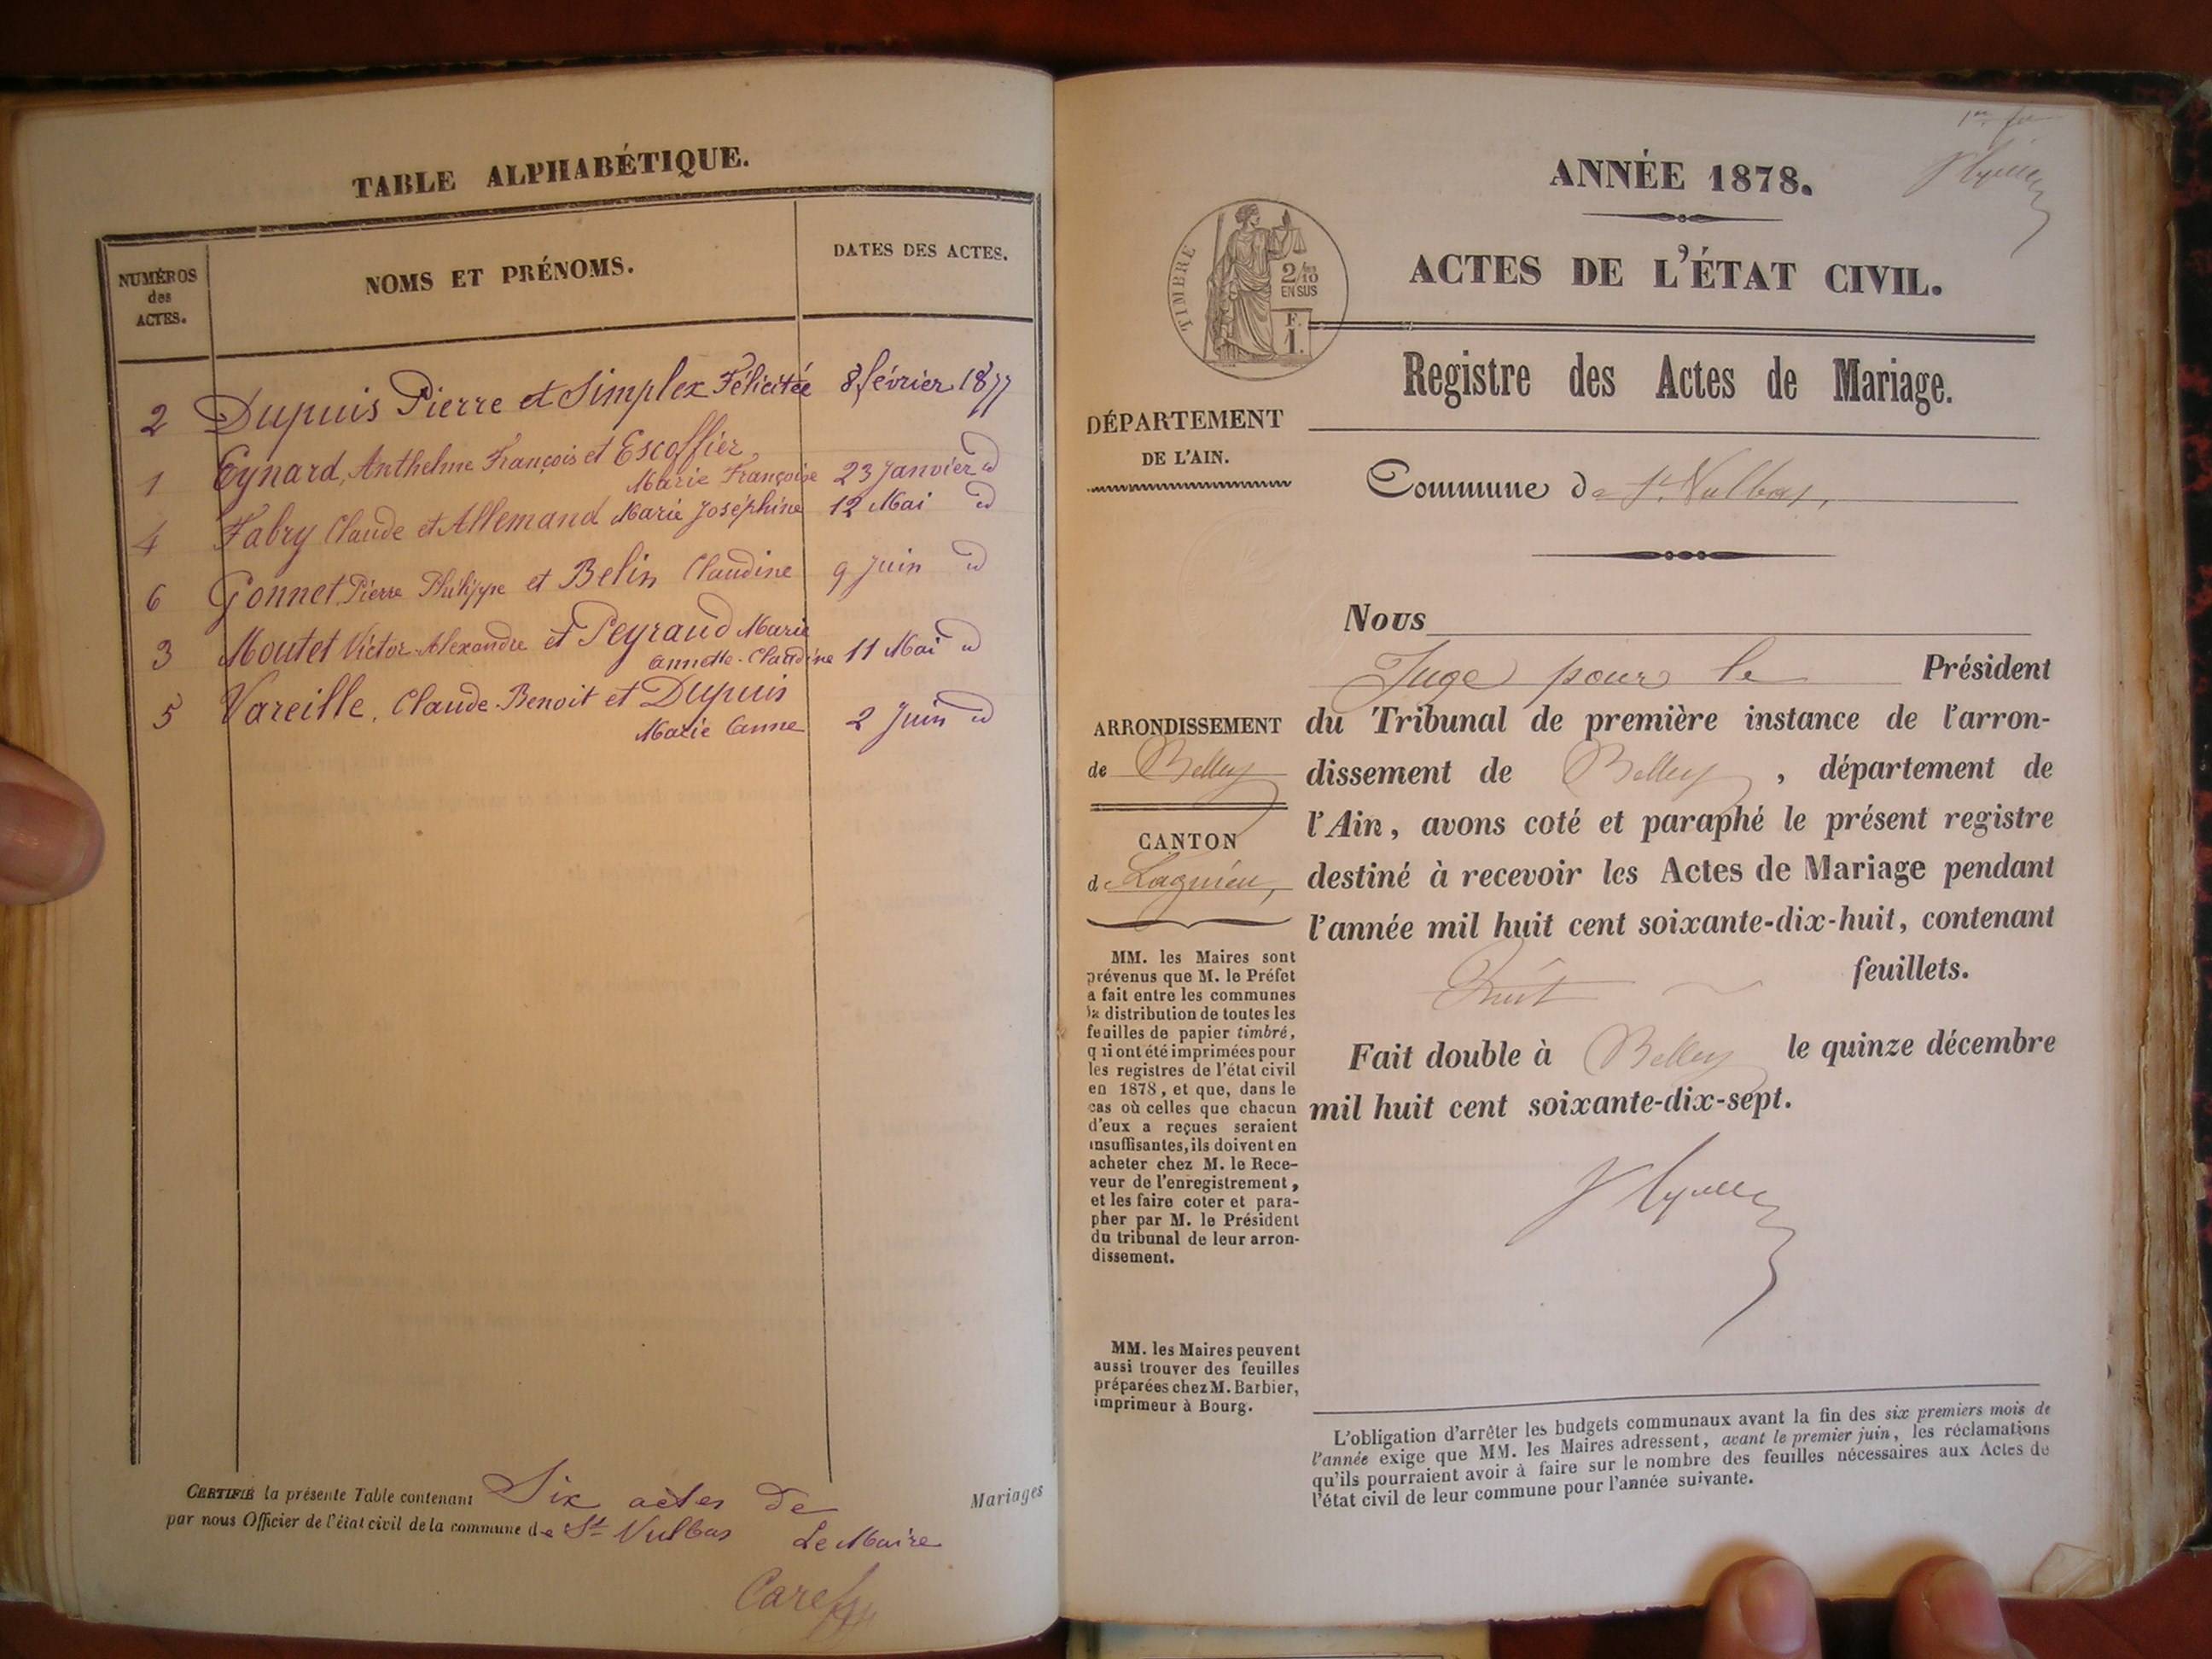 TABLE ALPHABÉTIQUE.
NUMÉROS
des
ACTES.
NOMS ET PRÉNOMS.
DATES DES ACTES.
2 Dupuis Pierre et Simplex Félicitée 8 février 1877
1 Eynard, Anthelme François et Escoffier
Marie Françoise 23 Janvier id
4 Fabry Claude et Allemand Marie Joséphine 12 Mai id
6 Gonnet Pierre Philippe et Belin Claudine 9 Juin id
3 Moutet Victor Alexandre et Peyraud Marie
Annette-Claudine 11 Mai id
5 Vareille, Claude-Benoit et Dupuis
Marie Anne 2 Juin id
CERTIFIÉ la présente Table contenant Six actes de Mariages
par nous Officier de l'état civil de la commune de St Vulbas Le Maire
ANNÉE 1878.
ACTES DE L'ÉTAT CIVIL.
TIMBRE
2/10
EN SUS
F.
1.
Registre des Actes de Mariage.
DÉPARTEMENT
DE L'AIN.
Commune de St. Vulbas,
Nous
Juge pour le Président
du Tribunal de première instance de l'arron-
dissement de Belley, département de
l'Ain, avons coté et paraphé le présent registre
destiné à recevoir les Actes de Mariage pendant
l'année mil huit cent soixante-dix-huit, contenant
Huit feuillets.
Fait double à Belley le quinze décembre
mil huit cent soixante-dix-sept.
ARRONDISSEMENT
de Belley
CANTON
de Lagnieu,
MM. les Maires sont
prévenus que M. le Préfet
a fait entre les communes
la distribution de toutes les
feuilles de papier timbré,
qui ont été imprimées pour
les registres de l'état civil
en 1878, et que, dans le
cas où celles que chacun
d'eux a reçues seraient
insuffisantes, ils doivent en
acheter chez M. le Rece-
veur de l'enregistrement,
et les faire coter et para-
pher par M. le Président
du tribunal de leur arron-
dissement.
MM. les Maires peuvent
aussi trouver des feuilles
préparées chez M. Barbier,
imprimeur à Bourg.
L'obligation d'arrêter les budgets communaux avant la fin des six premiers mois de
l'année exige que MM. les Maires adressent, avant le premier juin, les réclamations
qu'ils pourraient avoir à faire sur le nombre des feuilles nécessaires aux Actes de
l'état civil de leur commune pour l'année suivante.